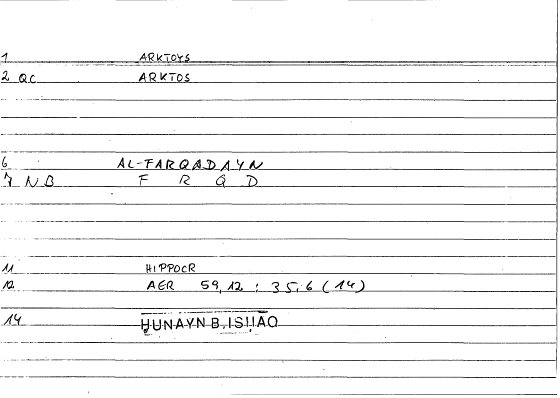 1 ARKTOYS
2 QC ARKTOS
6 AL-FARQADAYN
7 NB F R Q D
11 HIPPOCR
12 AER 59,12 : 35,6 (14)
14 HUNAYN B. ISHAQ